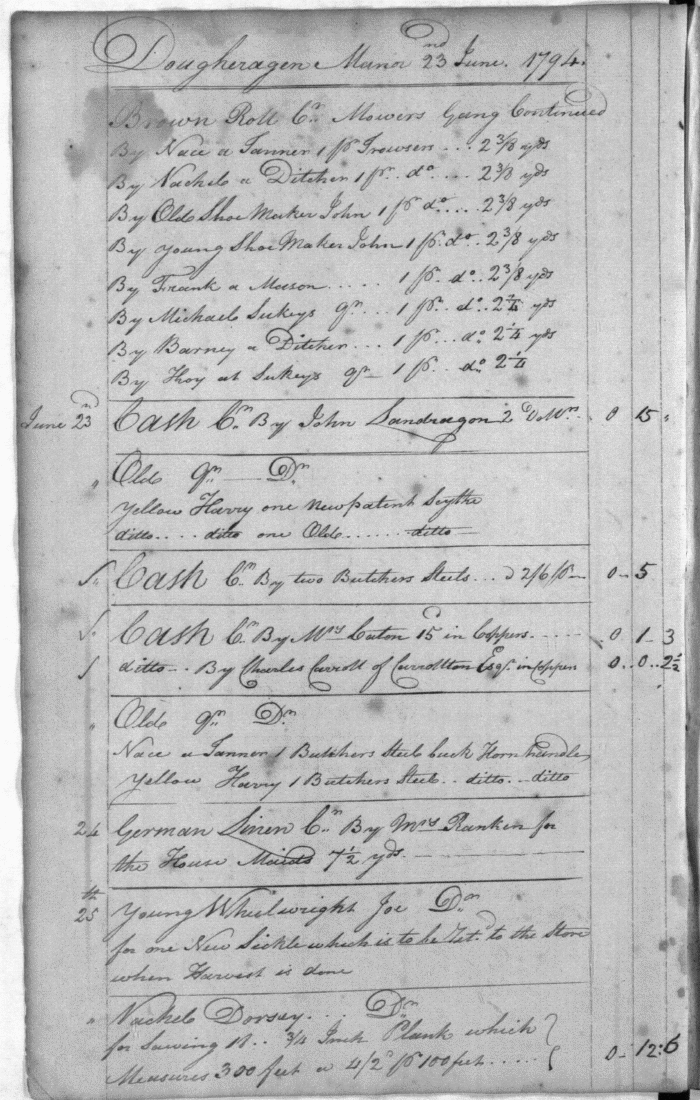 Dougheragen Manor 23nd June. 1794.
Brown Roll Cr. Mowers Gang Continued
By Nace a Tanner 1 pr Trowsers ... 2 3/8 yds
By Nachel a Ditcher 1 pr. do. ... 2 3/8 yds
By Old Shoe Maker John 1 pr do. ... 2 3/8 yds
By Young Shoe Maker John 1 pr. do. 2 3/8 yds
By Frank a Mason ..... 1 pr. do. 2 3/8 yds
By Michael Sukeys qr. ... 1 pr. do. 2 1/4 yds
By Barney a Ditcher ... 1 pr. do. 2 1/4 yds
By Hoy at Sukeys qr 1 pr. do. 2 1/4
June 23nd Cash Cr. By John Landragon 2 0 15 "
" Old qr. Dr
Yellow Harry one new patent Scythe
ditto.... ditto one Old ...... ditto
Cash Cr. By two Butchers Steels ... 2/6 pr 0 .. 5
Cash Cr. By Mrs Caton 15d in Coppers ..... 0 1 3
ditto .. By Charles Carroll of Carrollton Esqr. in Coppers 0 .. 0 .. 2 1/2
" Old qr. Dr.
Nace a Tanner 1 Butchers Steel buck Horn handle
Yellow Harry 1 Butchers Steel .. ditto ... ditto
24 German Linen Cr. By Mrs Rankin for
the House Maids 7 1/2 yds
25th Young Wheelwright Joe Dr.
for one New Sickle which is to be Ret.d to the Store
when Harvest is done
" Nachel Dorsey ... Dr.
for Sawing 18 .. 3/4 Inch Plank which
Measures 300 feet a 4/2d pr 100 feet ..... 0 - 12: 6